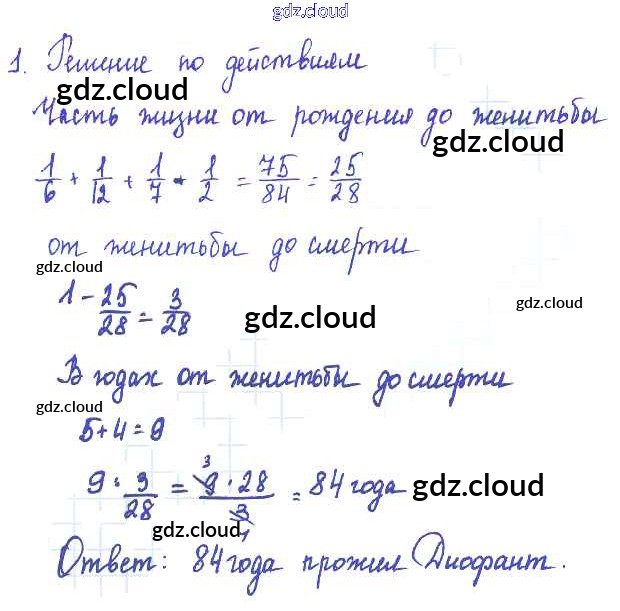 gdz.cloud
1. Решение по действиям
gdz.cloud
Часть жизни от рождения до женитьбы
gdz.cloud
1/6 + 1/12 + 1/7 + 1/2 = 75/84 = 25/28
от женитьбы до смерти
gdz.cloud
1 - 25/28 = 3/28
gdz.cloud
gdz.cloud
В годах от женитьбы до смерти
gdz.cloud
5 + 4 = 9
9 : 3/28 = 9 · 28 / 3 = 84 года
3
1
gdz.cloud
gdz.cloud
Ответ: 84 года прожил Диофант.